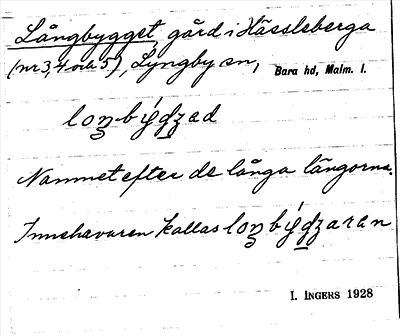 Långbygget gård i Hässleberga
(nr 3,4 och 5), Lyngby sn, Bara hd, Malm. l.
Namnet efter de långa längorna.
Innehavaren kallas
I. INGERS 1928